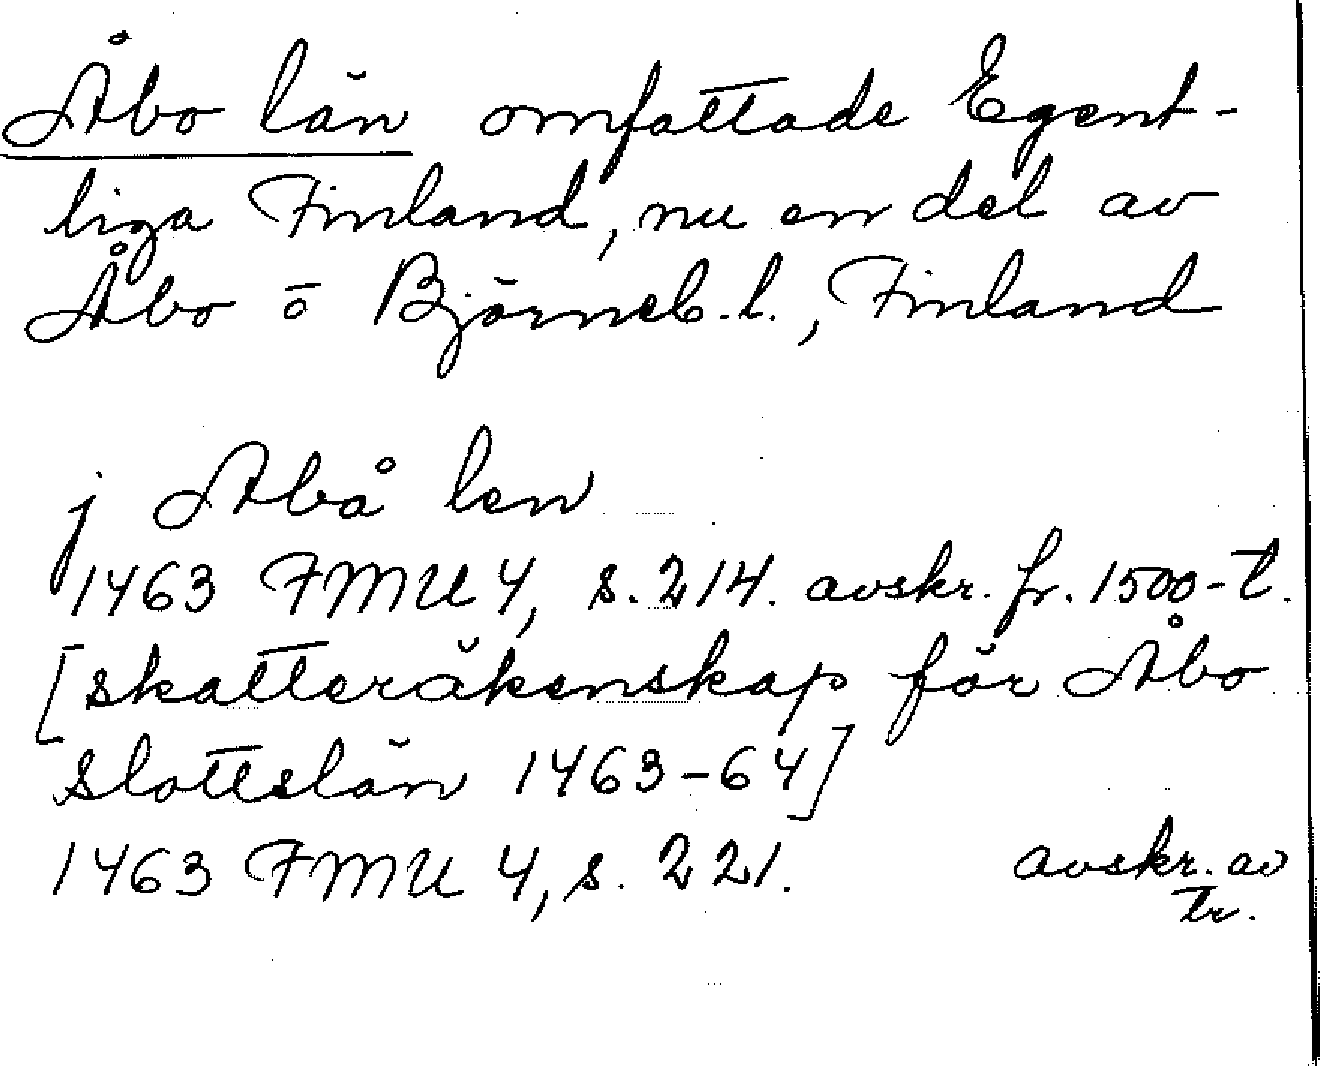 Åbo län omfattade Egent-
liga Finland, nu en del av
Åbo o Björneb. l., Finland
j Abå len
1463 FMU 4, s. 214. avskr. fr. 1500-t.
[skatteräkenskap för Åbo
slottslän 1463-64]
1463 FMU 4, s. 221. avskr. av
tr.